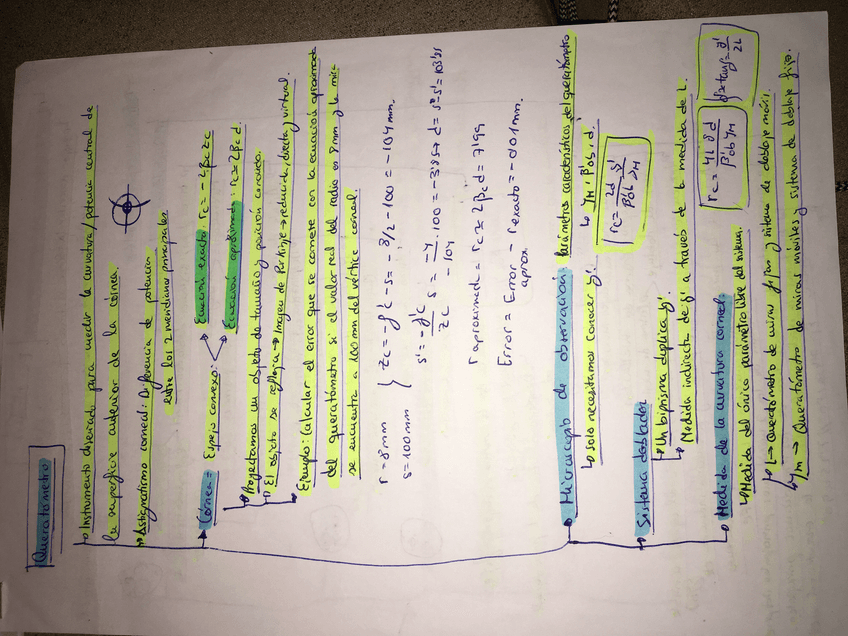 Queratómetro
↳ Instrumento diseñado para medir la curvatura/potencia central de
la superficie anterior de la córnea.
↳ Astigmatismo corneal: Diferencia de potencia
entre los 2 meridianos principales
Córnea = Espejo convexo:
Ecuación exacta: rc = -2βc zc
Ecuación aproximada: rc ≈ 2βc d.
↳ Proyectamos un objeto de tamaño y posición conocido.
↳ El objeto se refleja → Imagen de Purkinje → reducida, directa y virtual.
↳ Ejemplo: Calcular el error que se comete con la ecuación aproximada
del queratómetro si el valor real del radio es 8 mm y la mira
se encuentra a 100 mm del vértice corneal.
r = 8 mm
s = 100 mm
zc = -f'c - s = -8/2 - 100 = -104 mm.
s' = -f'c/zc s = -4/-104 · 100 = -3'85 → d = s - s' = 103'85
r aproximado = rc ≈ 2βc d = 7'99
Error = Error aprox. - r exacto = -0'01 mm.
Microscopio de observación: Parámetros característicos del queratómetro
↳ yM, β'ob, d.
↳ Solo necesitamos conocer y'.
rc = 2d/β'ob · y'/yM
Sistema doblador
↳ Un biprisma duplica y'.
↳ Medida indirecta de y' a través de la medida de L.
Medida de la curvatura corneal.
↳ Medida del único parámetro libre del sistema.
rc = 4L δ d / β'ob yM
δ ≈ tan δ = y'/2L
↳ L → Queratómetro de miras fijas y sistema de doblaje móvil.
↳ yM → Queratómetro de miras móviles y sistema de doblaje fijo.